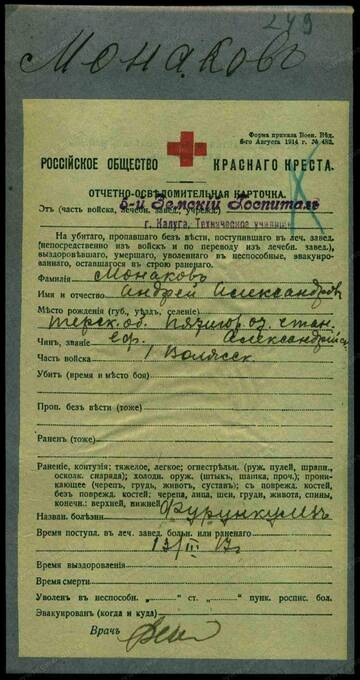 249
Монаковъ
Форма приказа Воен. Вѣд.
6-го Августа 1914 г. № 482.
РОССІЙСКОЕ ОБЩЕСТВО КРАСНАГО КРЕСТА.
ОТЧЕТНО-ОСВѢДОМИТЕЛЬНАЯ КАРТОЧКА.
Эт. (часть войска, лечебн. завед., учрежд.) 5-й Земскій Госпиталь
г. Калуга, Техническое училище
На убитаго, пропавшаго безъ вѣсти, поступившаго въ леч. завед.
(непосредственно изъ войскъ и по переводу изъ лечебн. завед.),
выздоровѣвшаго, умершаго, уволеннаго въ неспособные, эвакуиро-
ваннаго, оставшагося въ строю раненаго.
Фамилія Монаковъ
Имя и отчество Андрей Александровъ
Мѣсто рожденія (губ., уѣздъ, селеніе)
Терск. об. стан.
Чинъ, званіе Еф. Александрійск.
Часть войска 1 Волжск.
Убитъ (время и мѣсто боя)
Проп. безъ вѣсти (тоже)
Раненъ (тоже)
Раненіе, контузія: тяжелое, легкое; огнестрѣльн. (руж. пулей, шрапн.,
осколк. снаряда); холодн. оруж. (штыкъ, шашка, проч.); прони-
кающее (черепъ, грудь, животъ, суставъ); съ поврежд. костей,
безъ поврежд. костей: черепа, лица, шеи, груди, живота, спины,
конечн.: верхней, нижней
Назван. болѣзни Фурункулезъ
Время поступл. въ леч. завед. больн. или раненаго
13/III 17 г.
Время выздоровленія
Время смерти
Уволенъ въ неспособн. „ “ ст. „ “ пунк. роспис. бол.
Эвакуированъ (когда и куда)
Врачъ